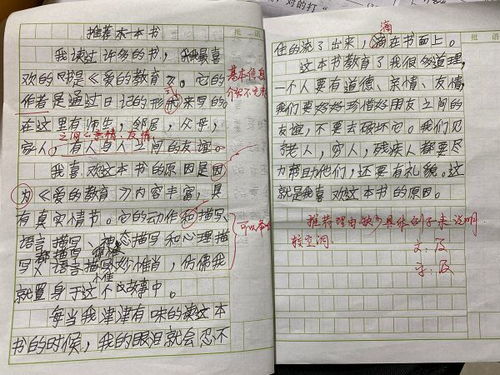 推荐一本书
我读过许多的书，我最喜
欢的书是《爱的教育》。它的
作者是通过日记的形式来写的
在这里有师生，邻居，父母，
家人，有人与人之间的友谊。
之间的亲情、友情
我喜欢这本书的原因是因
为《爱的教育》内容丰富，具
有真实情节。它的动作和描写
语言描写、神态描写和心理描
写，语言描写妙惟肖，仿佛我
就置身于这个故事中。
每当我津津有味的读这本
书的时候，我的眼泪就会忍不
基本信息
可以
住的流了出来，滴在书面上。
滴
这本书教育了我很多道理，
一个人要有道德、亲情、友情，
我们要好好珍惜好朋友之间的
友谊，不要去破坏它。我们见
老人，穷人，残疾人都要尽
力帮助他们，还要有礼貌。这
就是我喜欢这本书的原因。
推荐理由缺少具体例子来说明
较空洞。
文：及
字：及